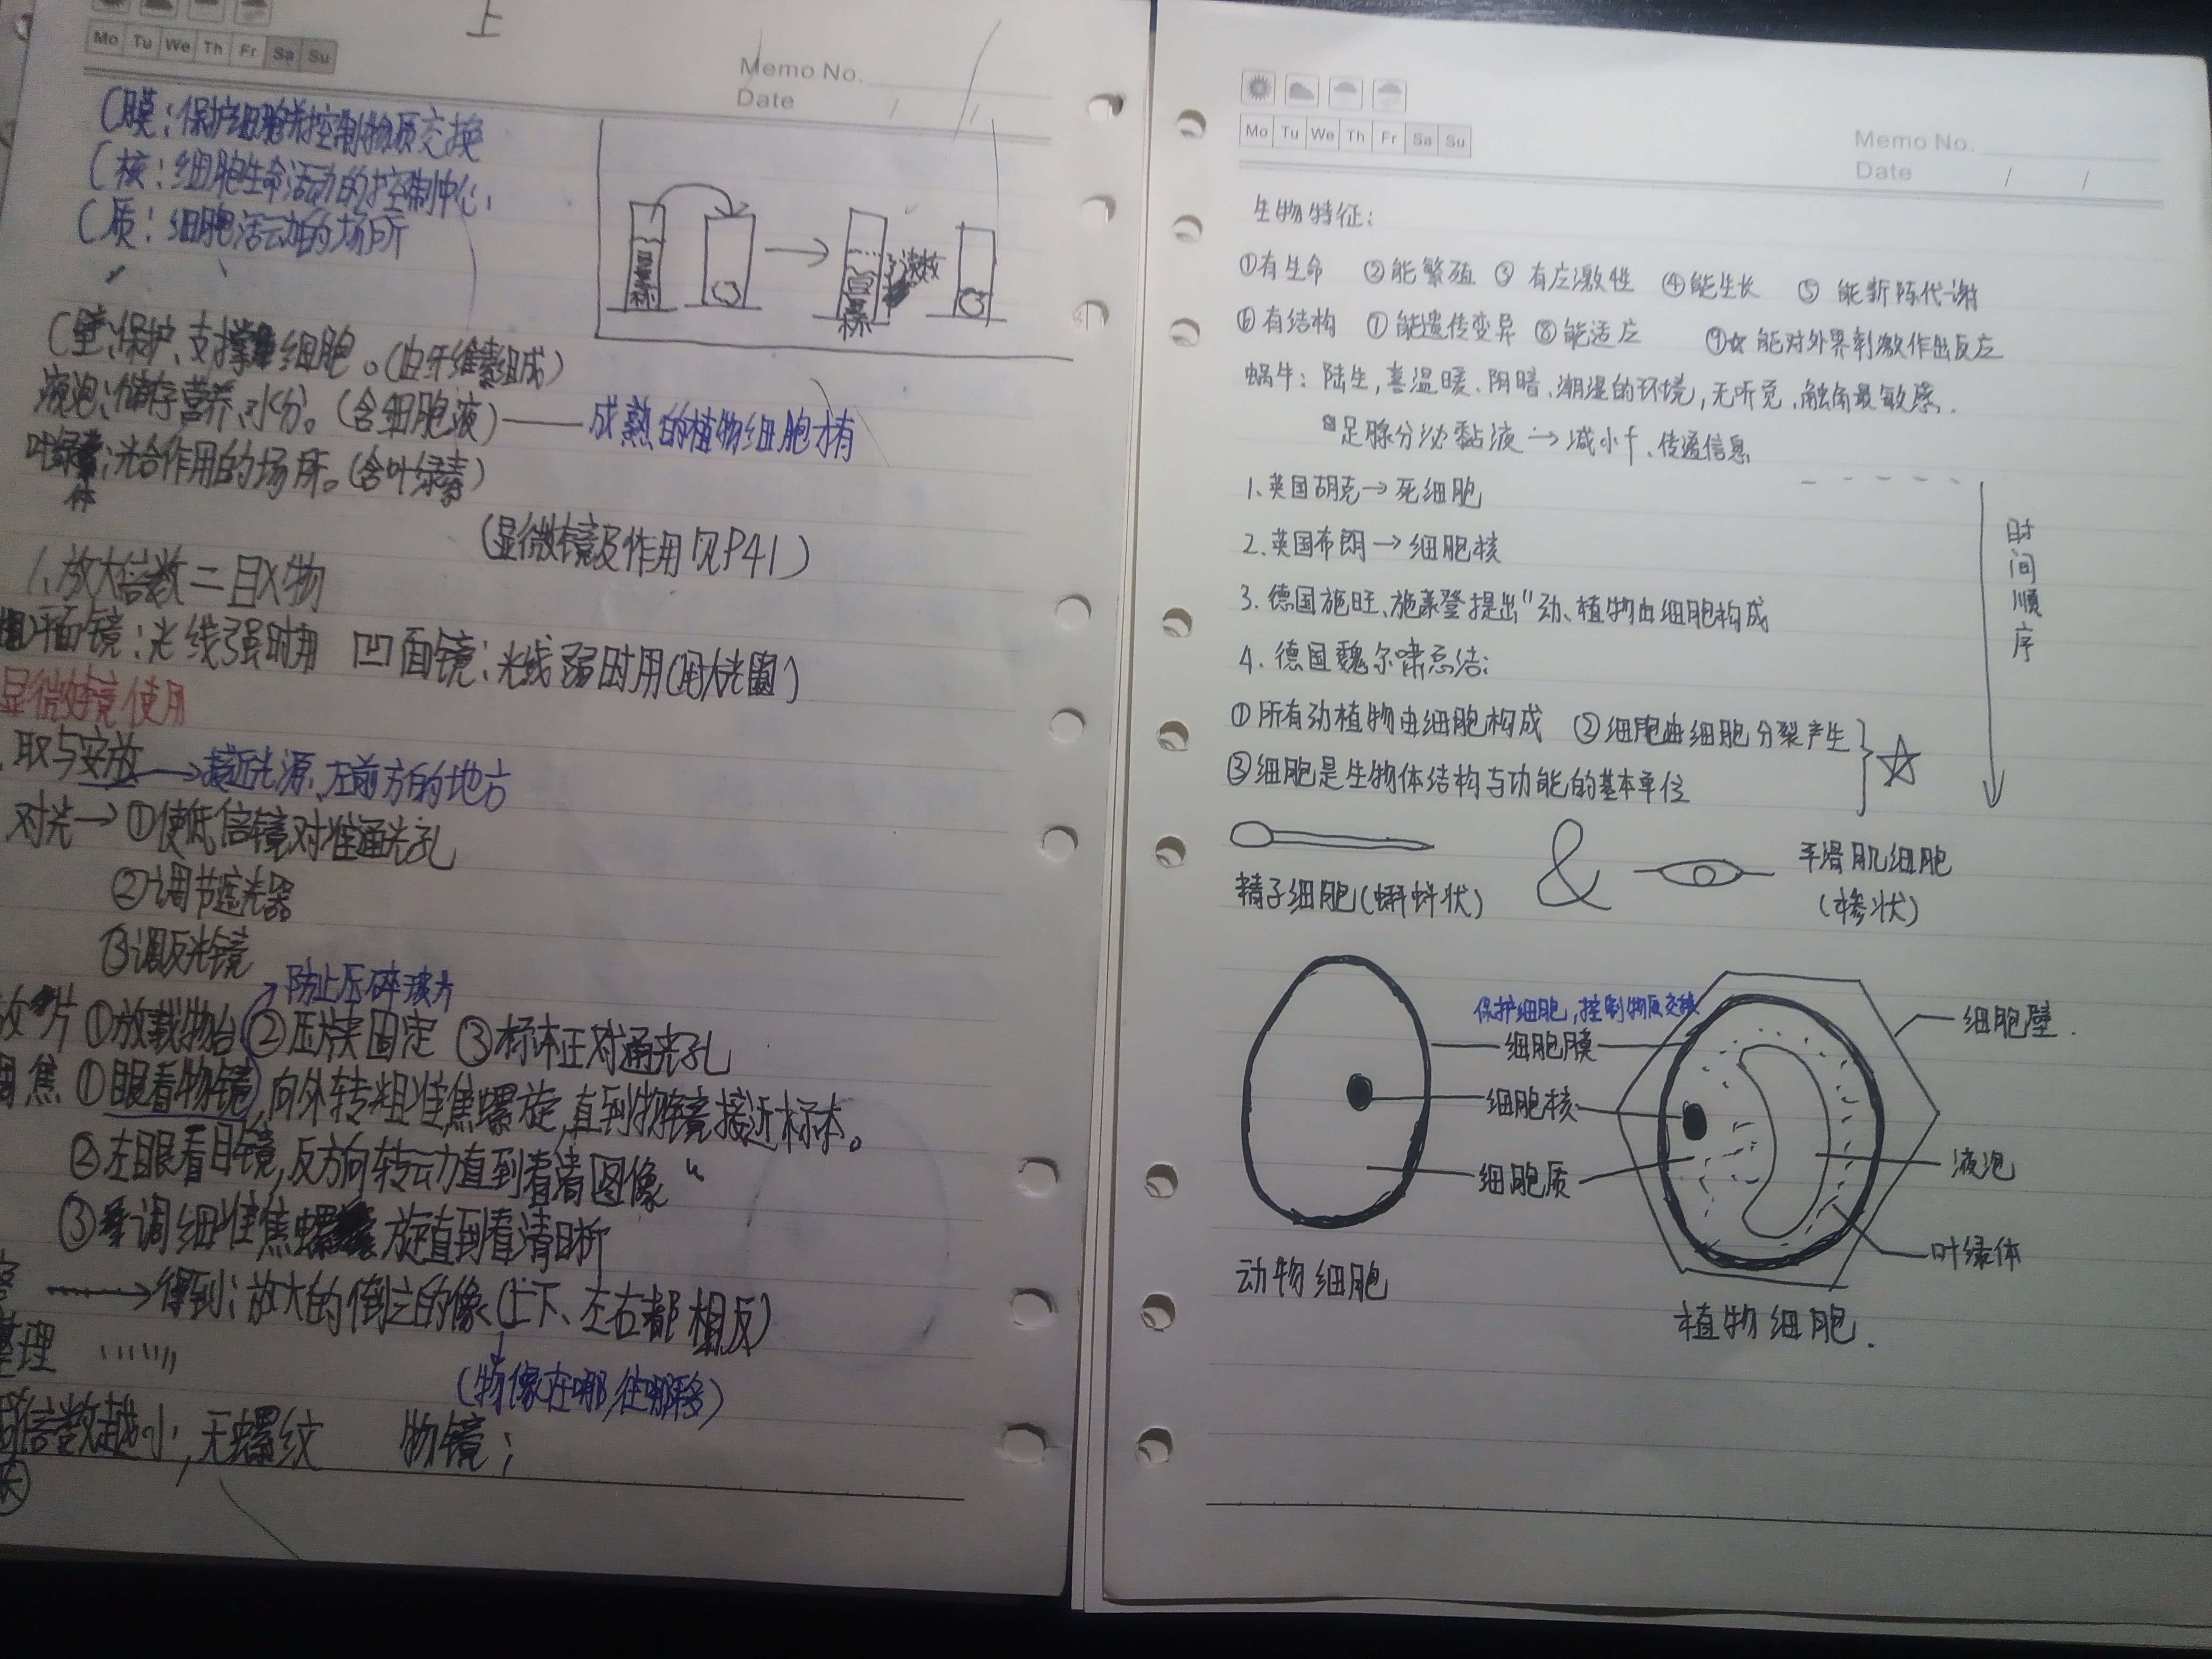 上
Mo Tu We Th Fr Sa Su
Memo No.
Date / /
C膜:保护细胞并控制物质交换
C核:细胞生命活动的控制中心.
C质:细胞活动的场所
读数
C壁:保护、支撑细胞。(由纤维素组成)
液泡:储存营养、水分。(含细胞液)——成熟的植物细胞才有
叶绿体:光合作用的场所。(含叶绿素)
(显微镜及作用见P41)
1.放大倍数=目×物
平面镜:光线强时用 凹面镜:光线弱时用(用大光圈)
显微镜使用
取与安放→接近光源、左前方的地方
对光→①使低倍镜对准通光孔
②调节遮光器
③调反光镜
防止压碎玻片
放片 ①放载物台 ②压夹固定 ③标本正对通光孔
调焦 ①眼看物镜,向外转粗准焦螺旋,直到物镜接近标本。
②左眼看目镜,反方向转动直到看清图像
③调细准焦螺旋直到看清晰
→得到:放大的倒立的像(上下、左右都相反)
整理
(物像在哪,往哪移)
倍数越小,无螺纹 物镜:
Mo Tu We Th Fr Sa Su
Memo No.
Date / /
生物特征:
①有生命 ②能繁殖 ③有应激性 ④能生长 ⑤能新陈代谢
⑥有结构 ⑦能遗传变异 ⑧能适应 ⑨☆能对外界刺激作出反应
蜗牛:陆生,喜温暖、阴暗、潮湿的环境,无听觉,触角最敏感.
足腺分泌黏液→减小f、传递信息
1.英国胡克→死细胞
2.英国布朗→细胞核
3.德国施旺、施莱登提出"动、植物由细胞构成
4.德国魏尔啸总结:
①所有动植物由细胞构成 ②细胞由细胞分裂产生
③细胞是生物体结构与功能的基本单位
时间顺序
精子细胞(蝌蚪状)
&
平滑肌细胞
(梭状)
保护细胞,控制物质交换
细胞膜
细胞核
细胞质
细胞壁.
液泡
叶绿体
动物细胞
植物细胞.